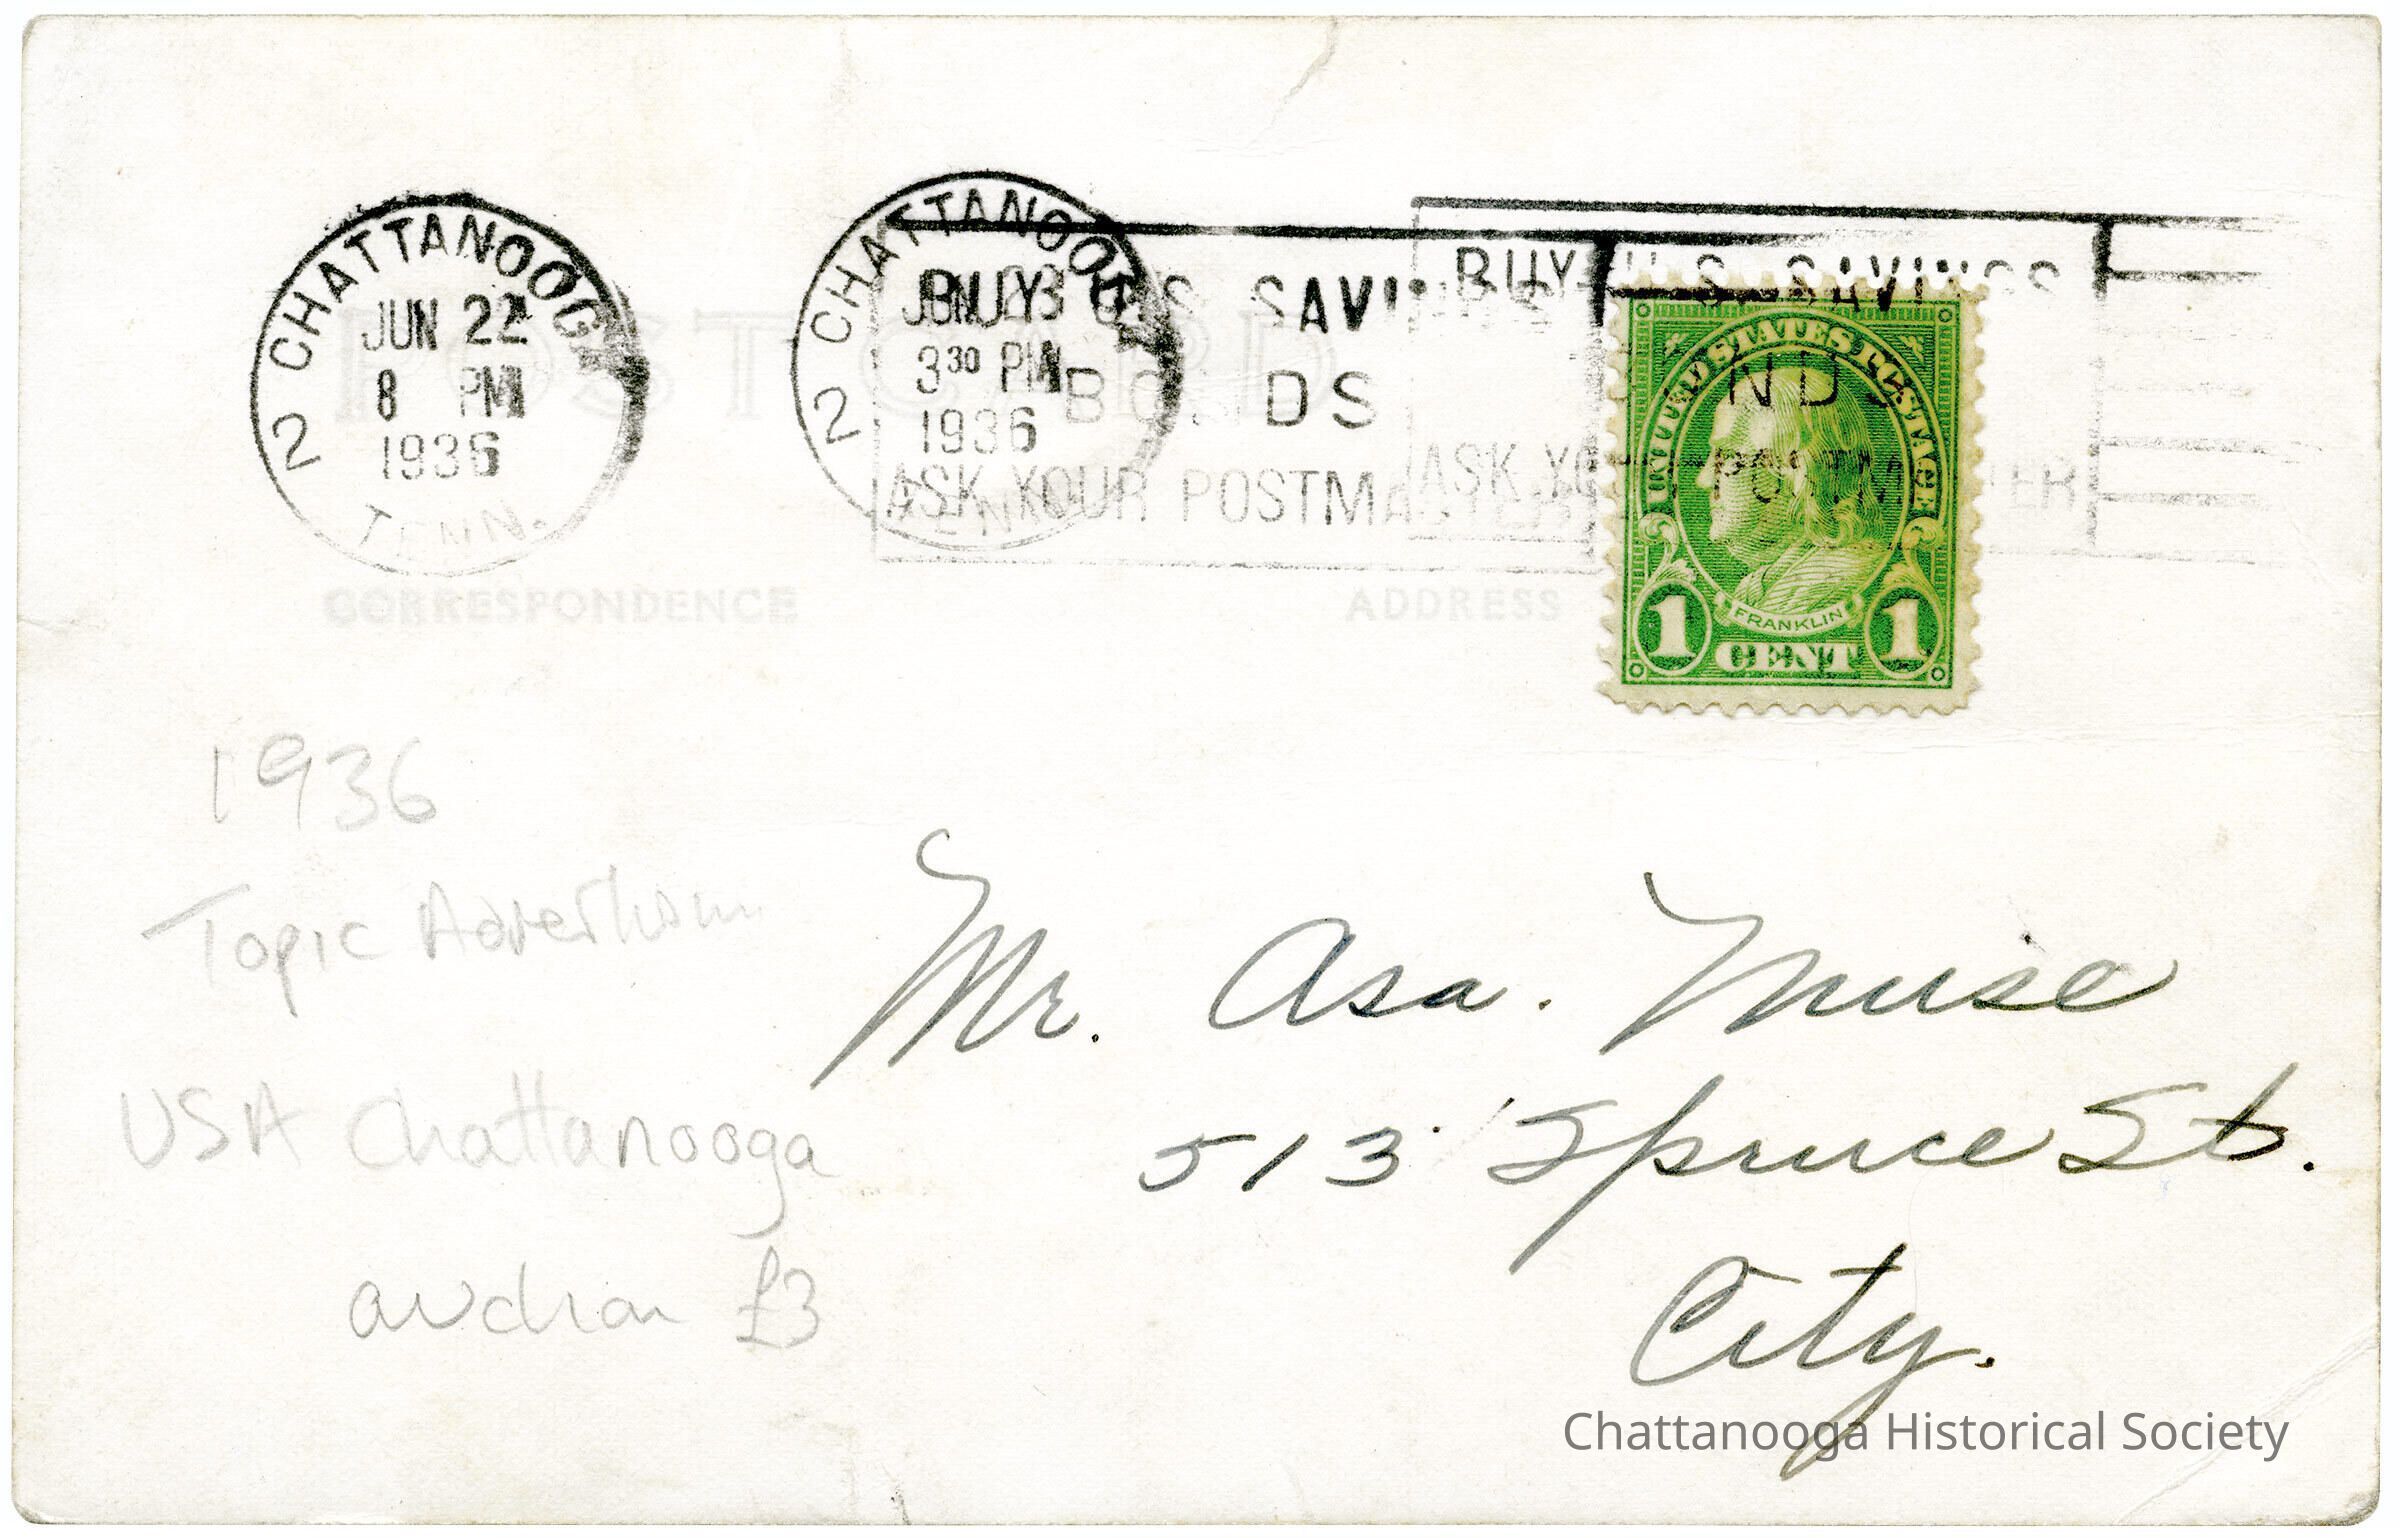 CHATTANOOGA
JUN 22
8 PM
1936
2
TENN.
CHATTANOOGA
JUN 23
3 30 PM
1936
2
TENN.
BUY U.S. SAVINGS
BONDS
ASK YOUR POSTMASTER
BUY U.S. SAVINGS
BONDS
ASK YOUR POSTMASTER
POST CARD
CORRESPONDENCE
ADDRESS
UNITED STATES POSTAGE
FRANKLIN
1 CENT 1
1936
Topic
USA Chattanooga
£3
Mr. Asa. Muse
513 Spruce St.
City.
Chattanooga Historical Society